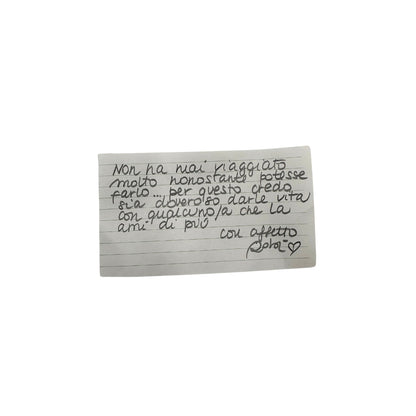 Non ha mai viaggiato
molto nonostante potesse
farlo... per questo credo
sia doveroso darle vita
con qualcuno/a che la
ami di più
con affetto